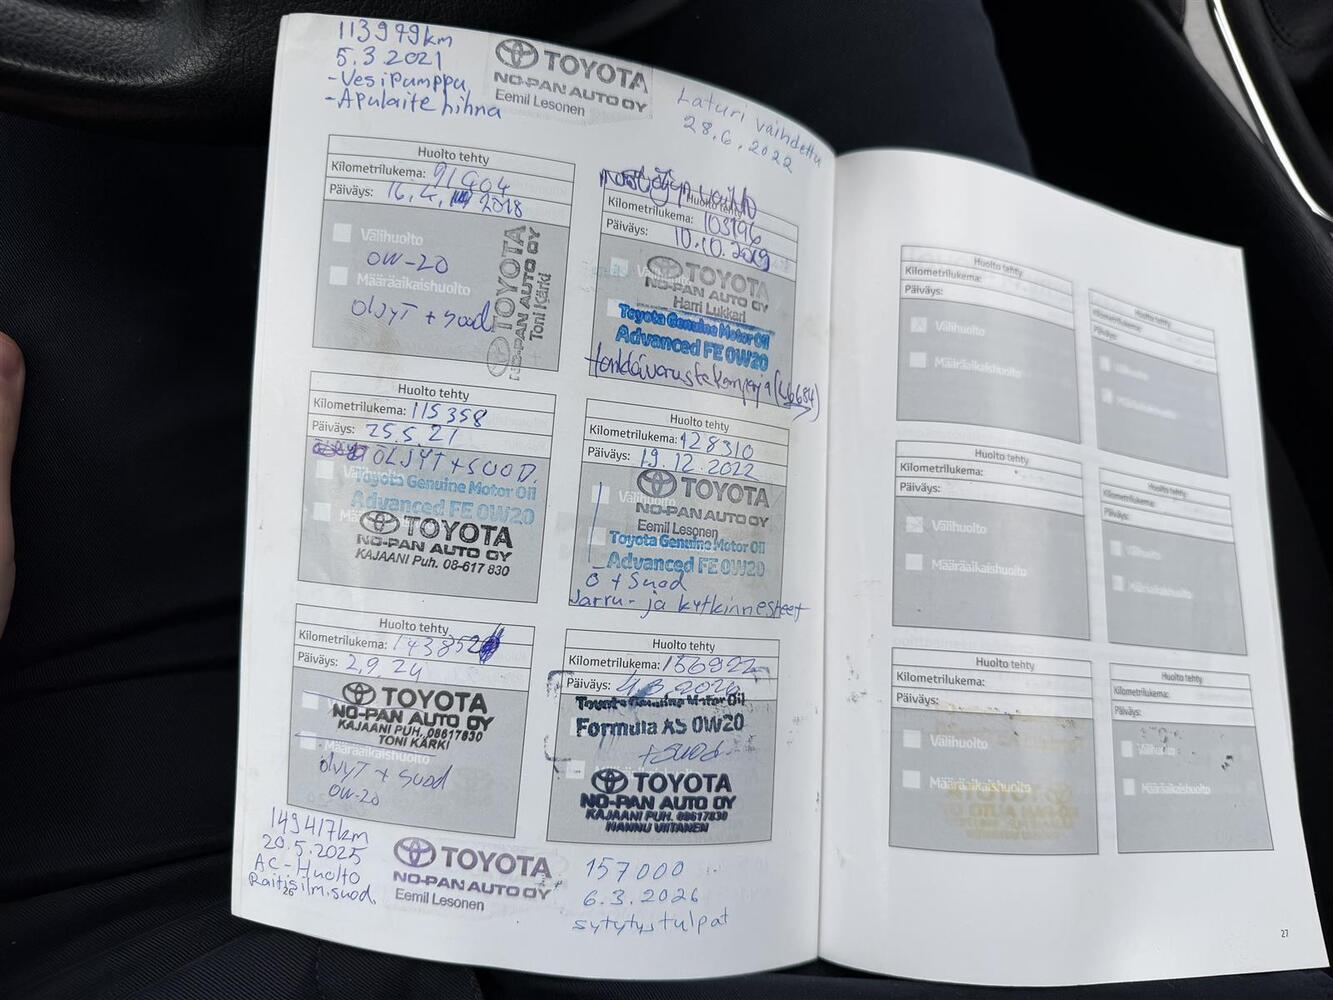 113979km
5.3.2021
-Vesipumppu
-Apulaite hihna
TOYOTA
NO-PAN AUTO OY
Eemil Lesonen
Laturi vaihdettu
28.6.2022
Huolto tehty
Kilometrilukema: 91904
Päiväys: 16.4. 2018
Välihuolto
0W-20
Määräaikaishuolto
ÖLJYT + suod
TOYOTA
NO-PAN AUTO OY
Toni Kärki
vaihto
Huolto tehty
Kilometrilukema: 103196
Päiväys: 10.10.2019
TOYOTA
NO-PAN AUTO OY
Harri Lukkari
Toyota Genuine Motor Oil
Advanced FE 0W20
Huolto tehty
Kilometrilukema: 115358
Päiväys: 25.5.21
ÖLJYT + SUOD.
Toyota Genuine Motor Oil
Advanced FE 0W20
TOYOTA
NO-PAN AUTO OY
KAJAANI Puh. 08-617 830
Huolto tehty
Kilometrilukema: 128310
Päiväys: 19.12.2022
Välihuolto
TOYOTA
NO-PAN AUTO OY
Eemil Lesonen
Toyota Genuine Motor Oil
Advanced FE 0W20
Ö + Suod
Jarru- ja kytkinnesteet
Huolto tehty
Kilometrilukema: 143852
Päiväys: 2.9.24
TOYOTA
NO-PAN AUTO OY
KAJAANI PUH. 08617830
TONI KÄRKI
Määräaikaishuolto
ÖLJYT + suod
0W-20
Huolto tehty
Kilometrilukema: 156922
Päiväys: 4.3.2026
Toyota Genuine Motor Oil
Formula XS 0W20
+ suod
TOYOTA
NO-PAN AUTO OY
KAJAANI PUH. 08617830
HANNU VIITANEN
149417km
20.5.2025
AC-Huolto
Raitisilmsuod.
26
TOYOTA
NO-PAN AUTO OY
Eemil Lesonen
157000
6.3.2026
sytytystulpat
Huolto tehty
Kilometrilukema:
Päiväys:
Välihuolto
Määräaikaishuolto
Huolto tehty
Kilometrilukema:
Päiväys:
Välihuolto
Määräaikaishuolto
Huolto tehty
Kilometrilukema:
Päiväys:
Välihuolto
Määräaikaishuolto
Huolto tehty
Kilometrilukema:
Päiväys:
Välihuolto
Määräaikaishuolto
Huolto tehty
Kilometrilukema:
Päiväys:
Välihuolto
Määräaikaishuolto
Huolto tehty
Kilometrilukema:
Päiväys:
Välihuolto
Määräaikaishuolto
27